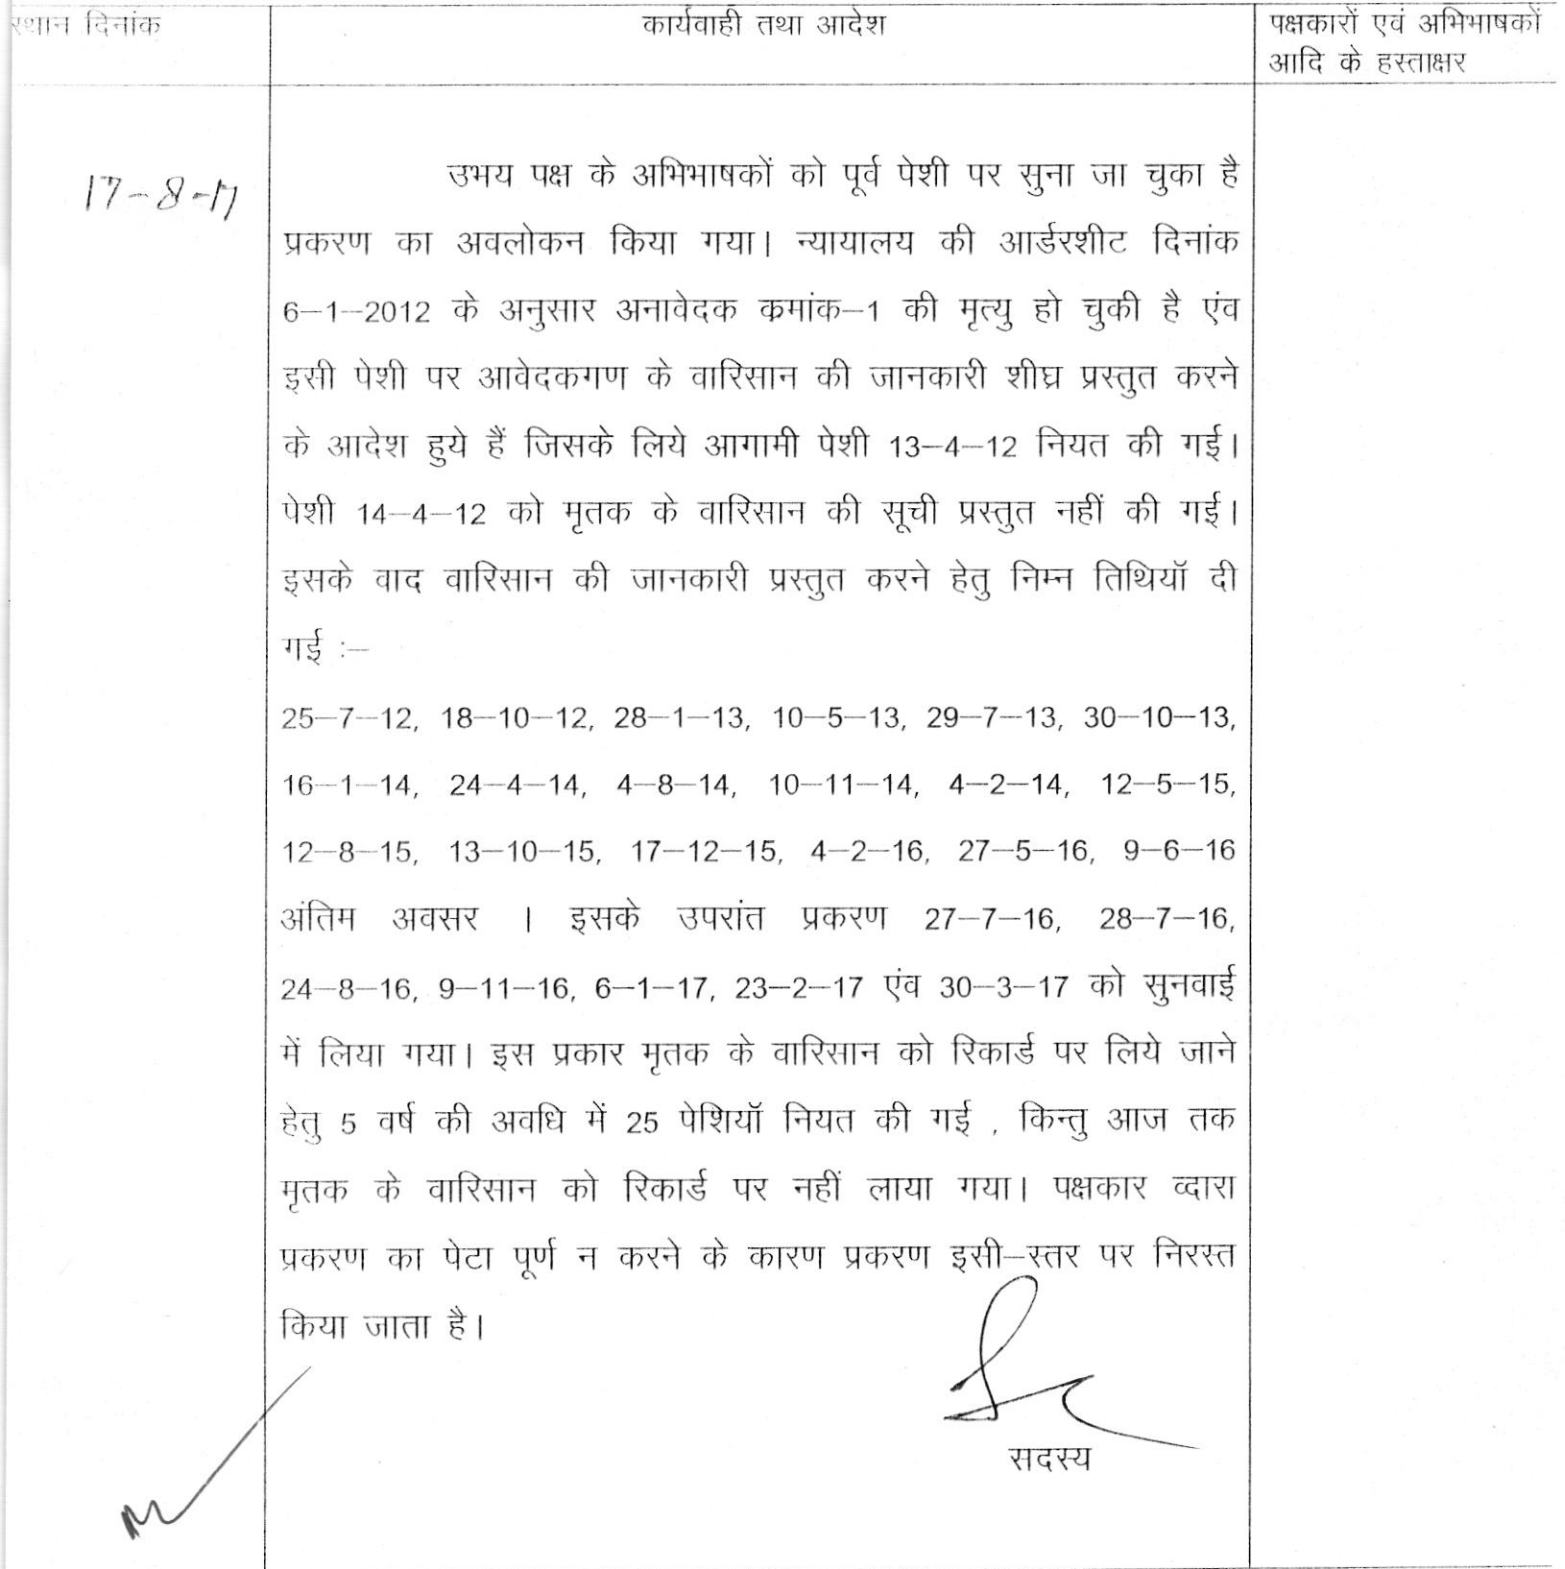 स्थान दिनांक
कार्यवाही तथा आदेश
पक्षकारों एवं अभिभाषकों
आदि के हस्ताक्षर
17-8-17
उभय पक्ष के अभिभाषकों को पूर्व पेशी पर सुना जा चुका है
प्रकरण का अवलोकन किया गया। न्यायालय की आर्डरशीट दिनांक
6-1-2012 के अनुसार अनावेदक कमांक-1 की मृत्यु हो चुकी है एंव
इसी पेशी पर आवेदकगण के वारिसान की जानकारी शीघ्र प्रस्तुत करने
के आदेश हुये हैं जिसके लिये आगामी पेशी 13-4-12 नियत की गई।
पेशी 14-4-12 को मृतक के वारिसान की सूची प्रस्तुत नहीं की गई।
इसके वाद वारिसान की जानकारी प्रस्तुत करने हेतु निम्न तिथियॉ दी
गई :-
25-7-12, 18-10-12, 28-1-13, 10-5-13, 29-7-13, 30-10-13,
16-1-14, 24-4-14, 4-8-14, 10-11-14, 4-2-14, 12-5-15,
12-8-15, 13-10-15, 17-12-15, 4-2-16, 27-5-16, 9-6-16
अंतिम अवसर । इसके उपरांत प्रकरण 27-7-16, 28-7-16,
24-8-16, 9-11-16, 6-1-17, 23-2-17 एंव 30-3-17 को सुनवाई
में लिया गया। इस प्रकार मृतक के वारिसान को रिकार्ड पर लिये जाने
हेतु 5 वर्ष की अवधि में 25 पेशियॉ नियत की गई , किन्तु आज तक
मृतक के वारिसान को रिकार्ड पर नहीं लाया गया। पक्षकार व्दारा
प्रकरण का पेटा पूर्ण न करने के कारण प्रकरण इसी-स्तर पर निरस्त
किया जाता है।
सदस्य